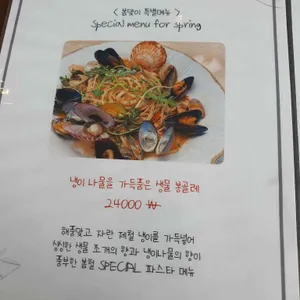 < 봄맞이 특별메뉴 >
Special menu for spring
냉이 나물을 가득품은 생물 봉골레
24000 ₩
해풍맞고 자란 제철 냉이를 가득넣어
싱싱한 생물 조개의 향과 냉이나물의 향이
풍부한 봄철 SPECIAL 파스타 메뉴